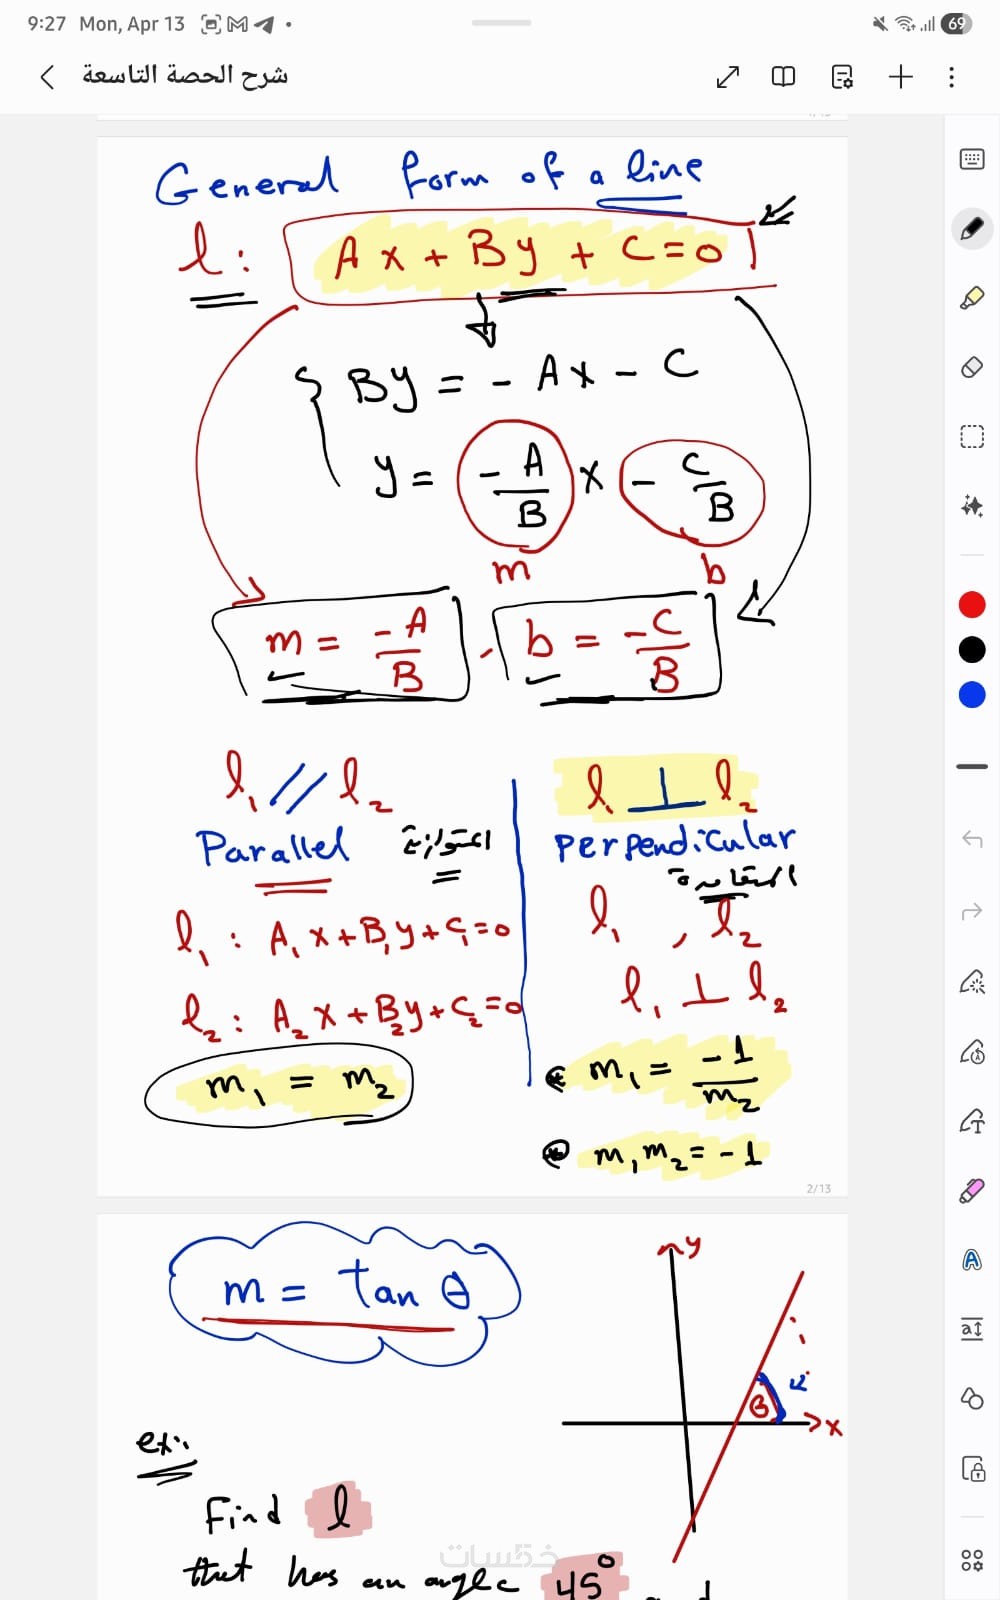 9:27 Mon, Apr 13
69
شرح الحصة التاسعة
General form of a line
l: Ax + By + C = 0
By = - Ax - C
y = - A/B x - C/B
m b
m = -A/B , b = -C/B
l₁ // l₂
Parallel المتوازية
l₁ : A₁x + B₁y + C₁ = 0
l₂ : A₂x + B₂y + C₂ = 0
m₁ = m₂
l₁ ⊥ l₂
Perpendicular
المتعامدة
l₁ , l₂
l₁ ⊥ l₂
m₁ = -1/m₂
m₁m₂ = -1
2/13
m = tan θ
y
x
ex:
Find l
that has an angle 45° and
خمسات